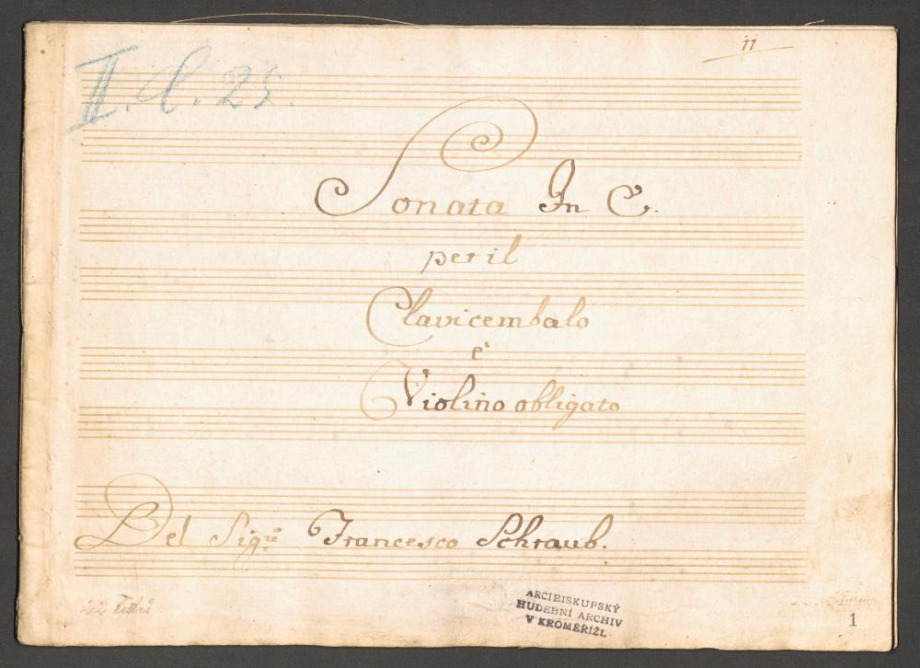 11
II. C. 25.
Sonata In C.
per il
Clavicembalo
e
Violino obligato
Del Sigre Francesco Schraub.
22
ARCIBISKUPSKÝ
HUDEBNÍ ARCHIV
V KROMĚŘÍŽI.
1